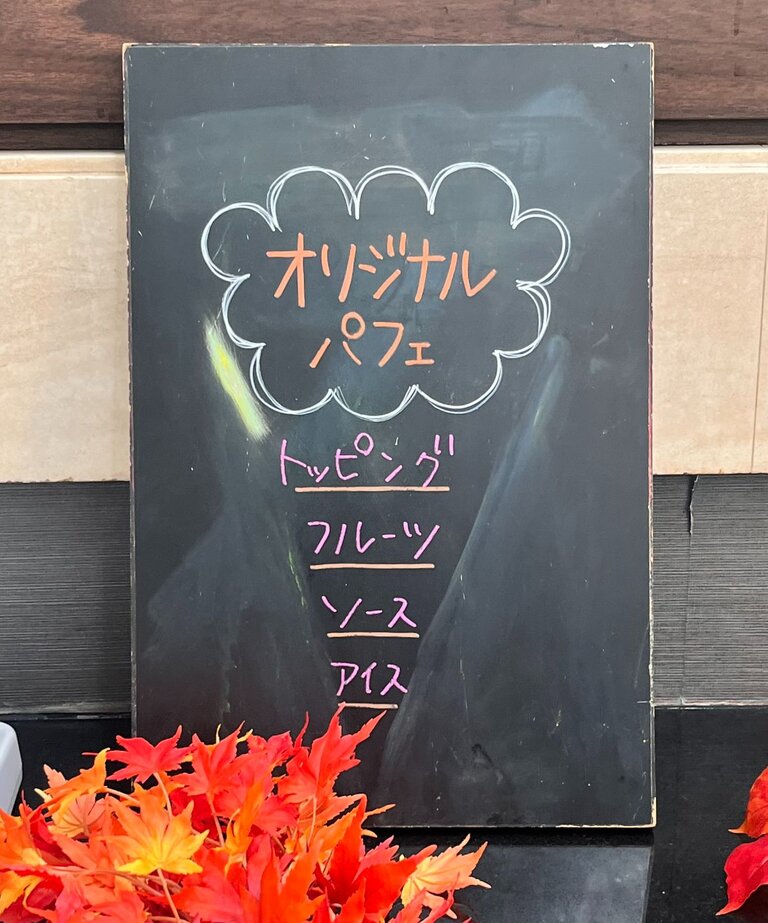 オリジナル
パフェ
トッピング
フルーツ
ソース
アイス